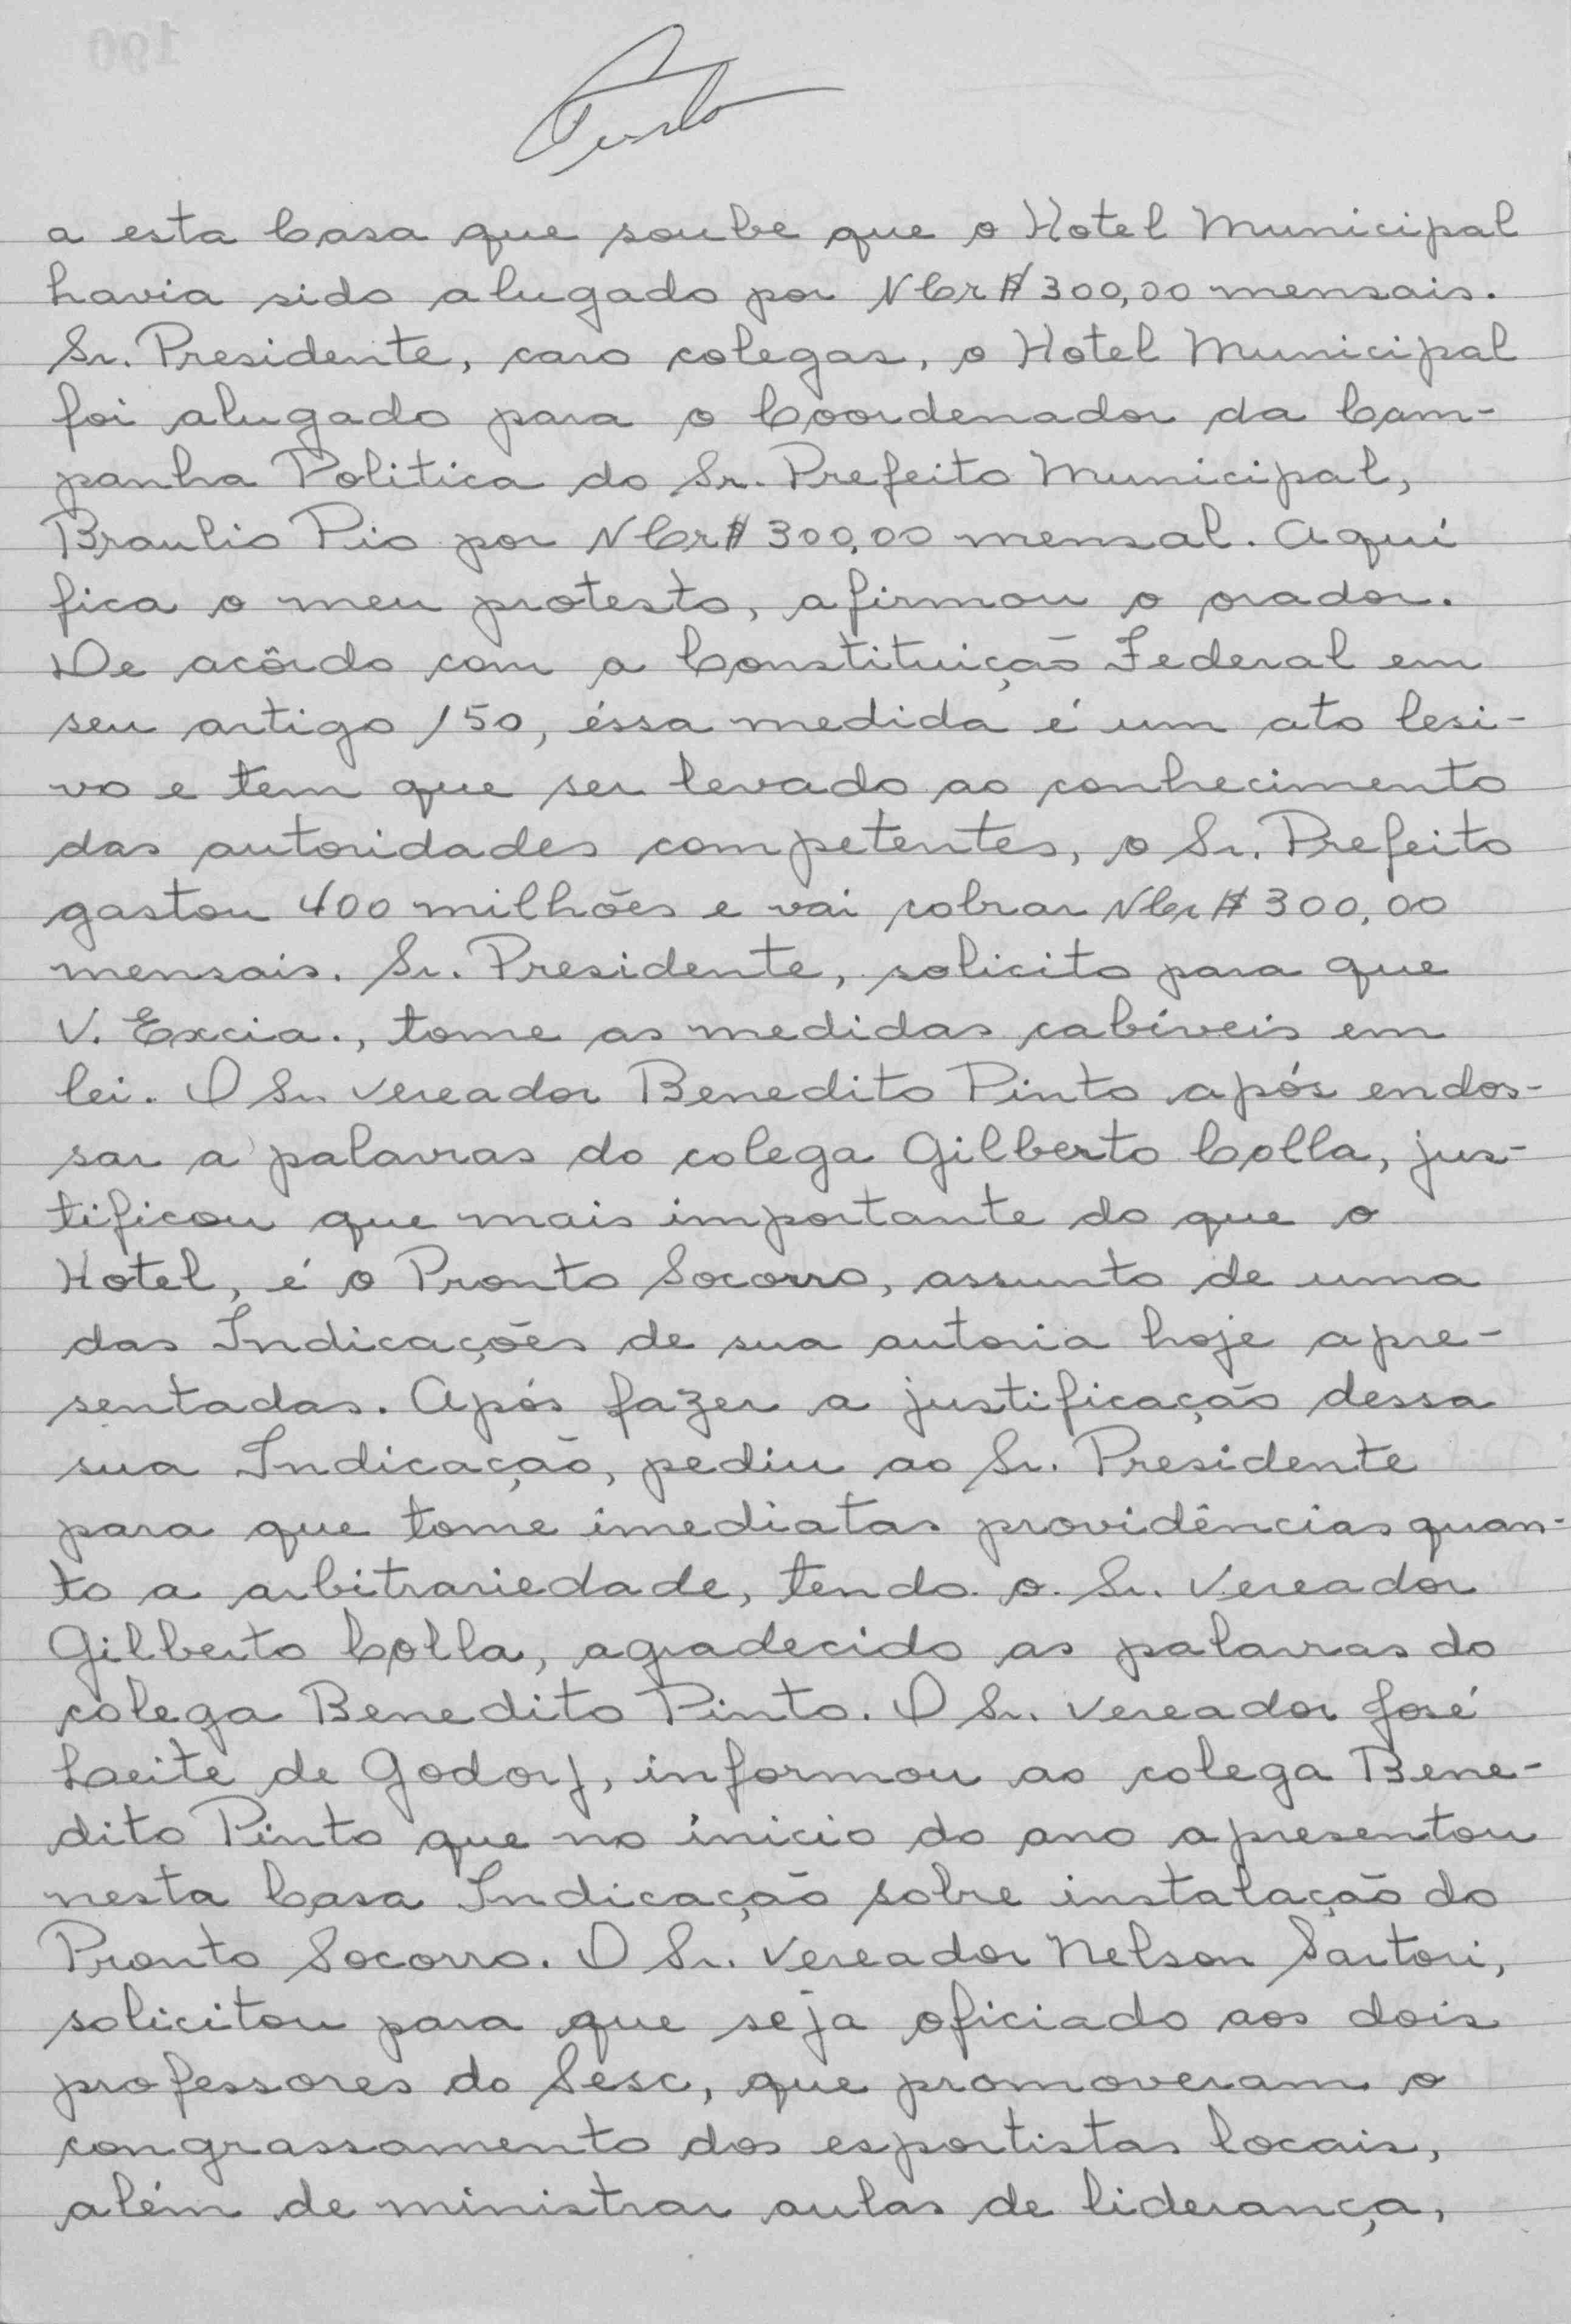 a esta Casa que soube que o Hotel Municipal
havia sido alugado por NCr$ 300,00 mensais.
Sr. Presidente, caro colegas, o Hotel Municipal
foi alugado para o Coordenador da Cam-
panha Politica do Sr. Prefeito Municipal,
Braulio Pio por NCr$ 300,00 mensal. Aqui
fica o meu protesto, afirmou o orador.
De acôrdo com a Constituição Federal em
seu artigo 150, éssa medida é um ato lesi-
vo e tem que ser levado ao conhecimento
das autoridades competentes, o Sr. Prefeito
gastou 400 milhões e vai cobrar NCr$ 300,00
mensais. Sr. Presidente, solicito para que
V. Excia., tome as medidas cabíveis em
lei. O Sr. Vereador Benedito Pinto após endos-
sar a palavras do colega Gilberto Colla, jus-
tificou que mais importante do que o
Hotel, é o Pronto Socorro, assunto de uma
das Indicações de sua autoria hoje apre-
sentadas. Após fazer a justificação dessa
sua Indicação, pediu ao Sr. Presidente
para que tome imediatas providências quan-
to a arbitrariedade, tendo o Sr. Vereador
Gilberto Colla, agradecido as palavras do
colega Benedito Pinto. O Sr. Vereador José
Leite de Godoy, informou ao colega Bene-
dito Pinto que no ínicio do ano apresentou
nesta Casa Indicação sobre instalação do
Pronto Socorro. O Sr. Vereador Nelson Sartori,
solicitou para que seja oficiado aos dois
professores do Sesc, que promoveram o
congrassamento dos esportistas locais,
além de ministrar aulas de liderança,